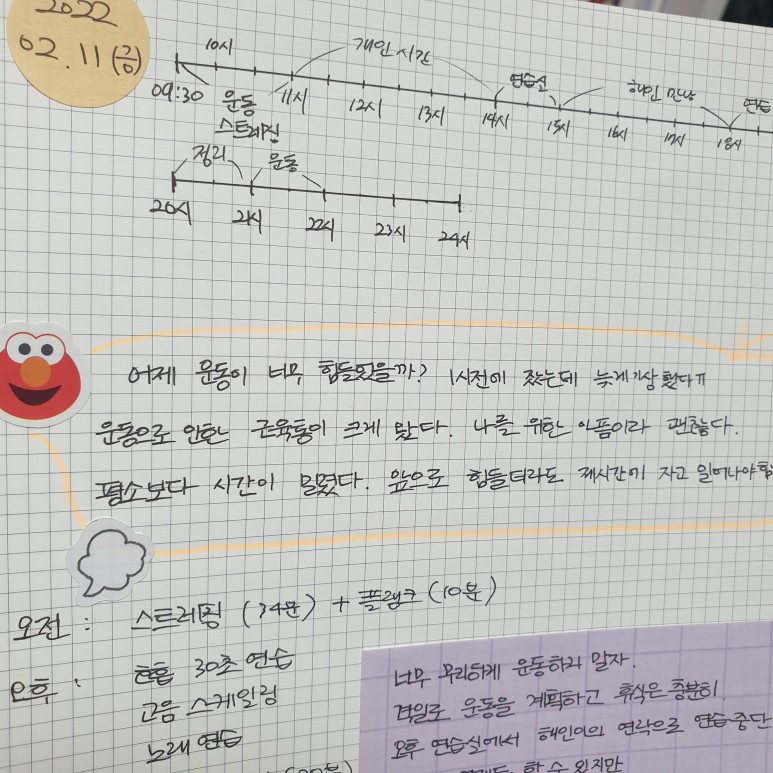 2022
02.11(금)
10시 개인시간 연습실 해인 만남 연습
09:30 운동 11시 12시 13시 14시 15시 16시 17시 18시
스트레칭
정리 운동
20시 21시 22시 23시 24시
어제 운동이 너무 힘들었을까? 1시전에 잤는데 늦게기상했다ㅠ
운동으로 인한 근육통이 크게 왔다. 나를 위한 아픔이라 괜찮다.
평소보다 시간이 밀렸다. 앞으로 힘들더라도 제시간에 자고 일어나야함
오전 : 스트레칭 (34분) + 플랭크 (10분)
오후 : 30초 연습
고음 스케일링
노래 연습
너무 무리하게 운동하지 말자.
격일로 운동을 계획하고 휴식은 충분히
오후 연습실에서 해인이의 연락으로 연습중단
할 수 있지만